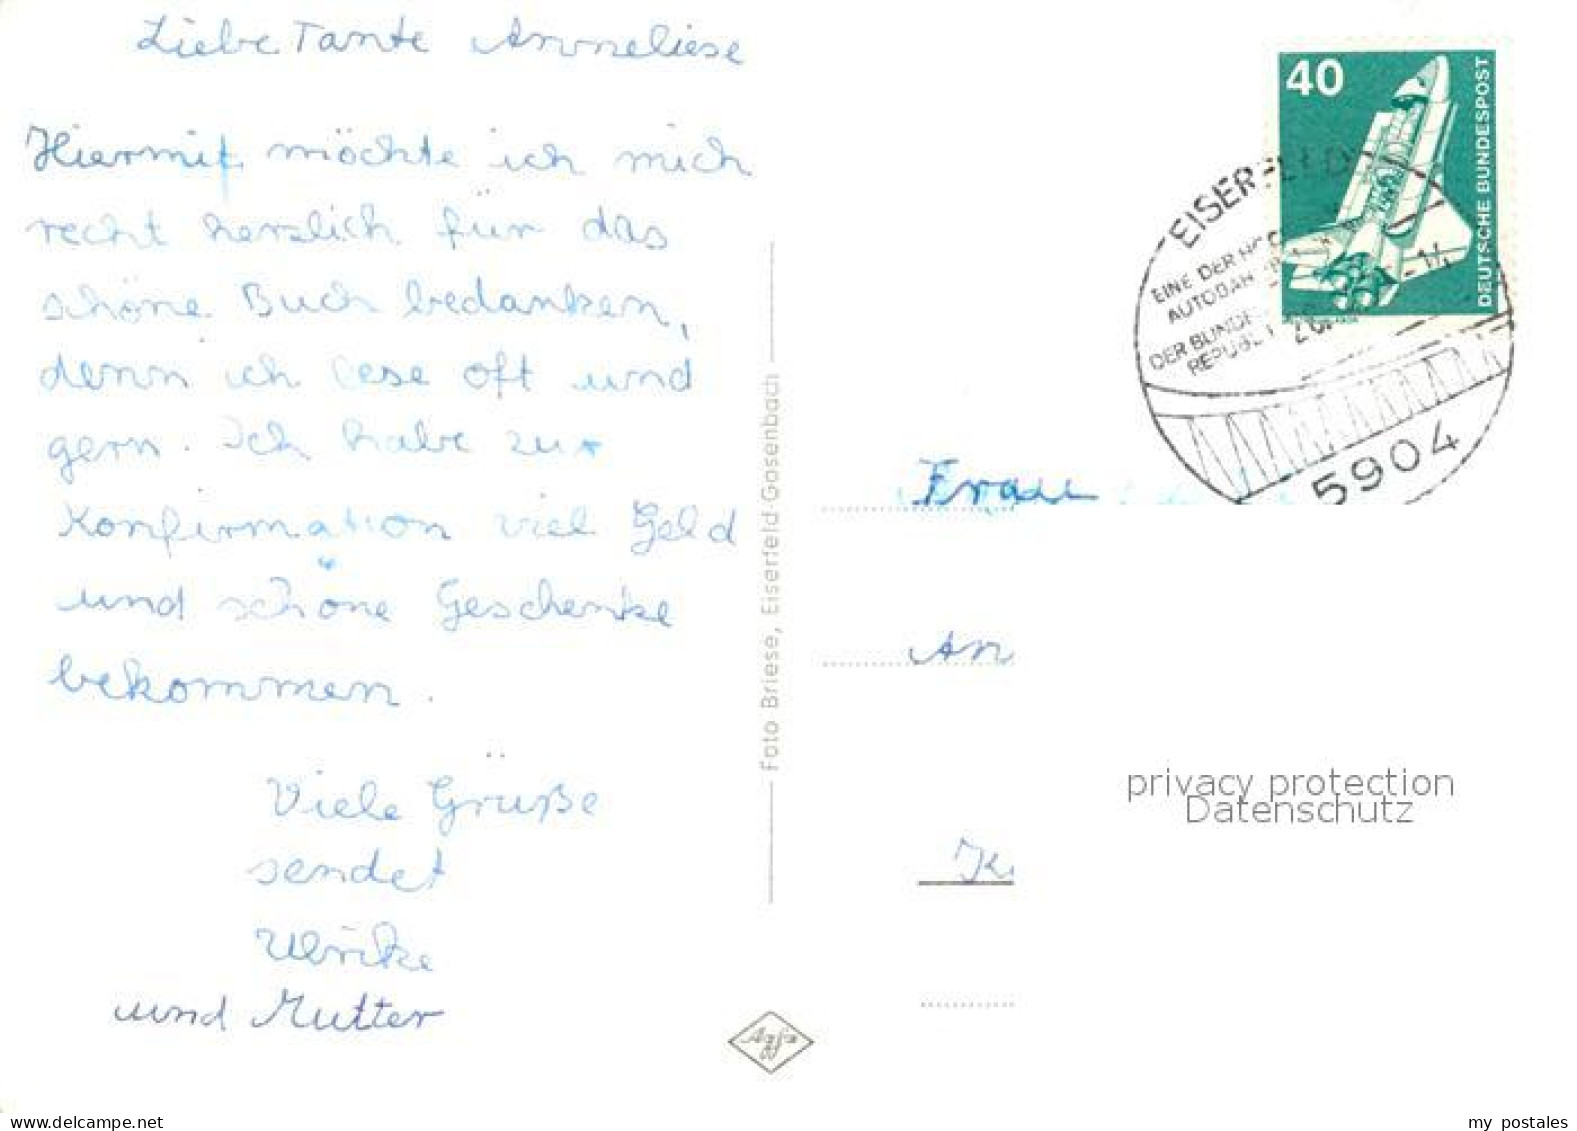 Liebe Tante Anneliese
Hiermit möchte ich mich
recht herzlich für das
schöne Buch bedanken,
denn ich lese oft und
gern. Ich habe zur
Konfirmation viel Geld
und schöne Geschenke
bekommen.
Viele Grüße
sendet
Ulrike
und Mutter
Foto Briese, Eiserfeld-Gosenbach
Agfa
40
DEUTSCHE BUNDESPOST
EISERFELD
EINE DER
DER
5904
Frau
An
K.
privacy protection
Datenschutz
www.delcampe.net
my postales